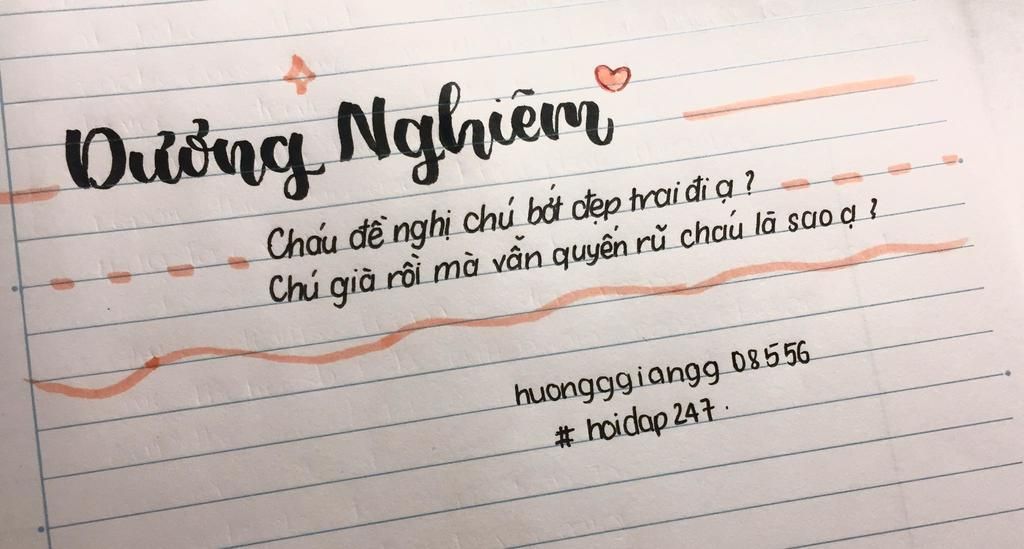 Dưởng Nghiêm
Cháu đề nghị chú bớt đẹp trai đi ạ ?
Chú già rồi mà vẫn quyến rũ cháu là sao ạ ?
huongggiangg 08556
# hoidap247.